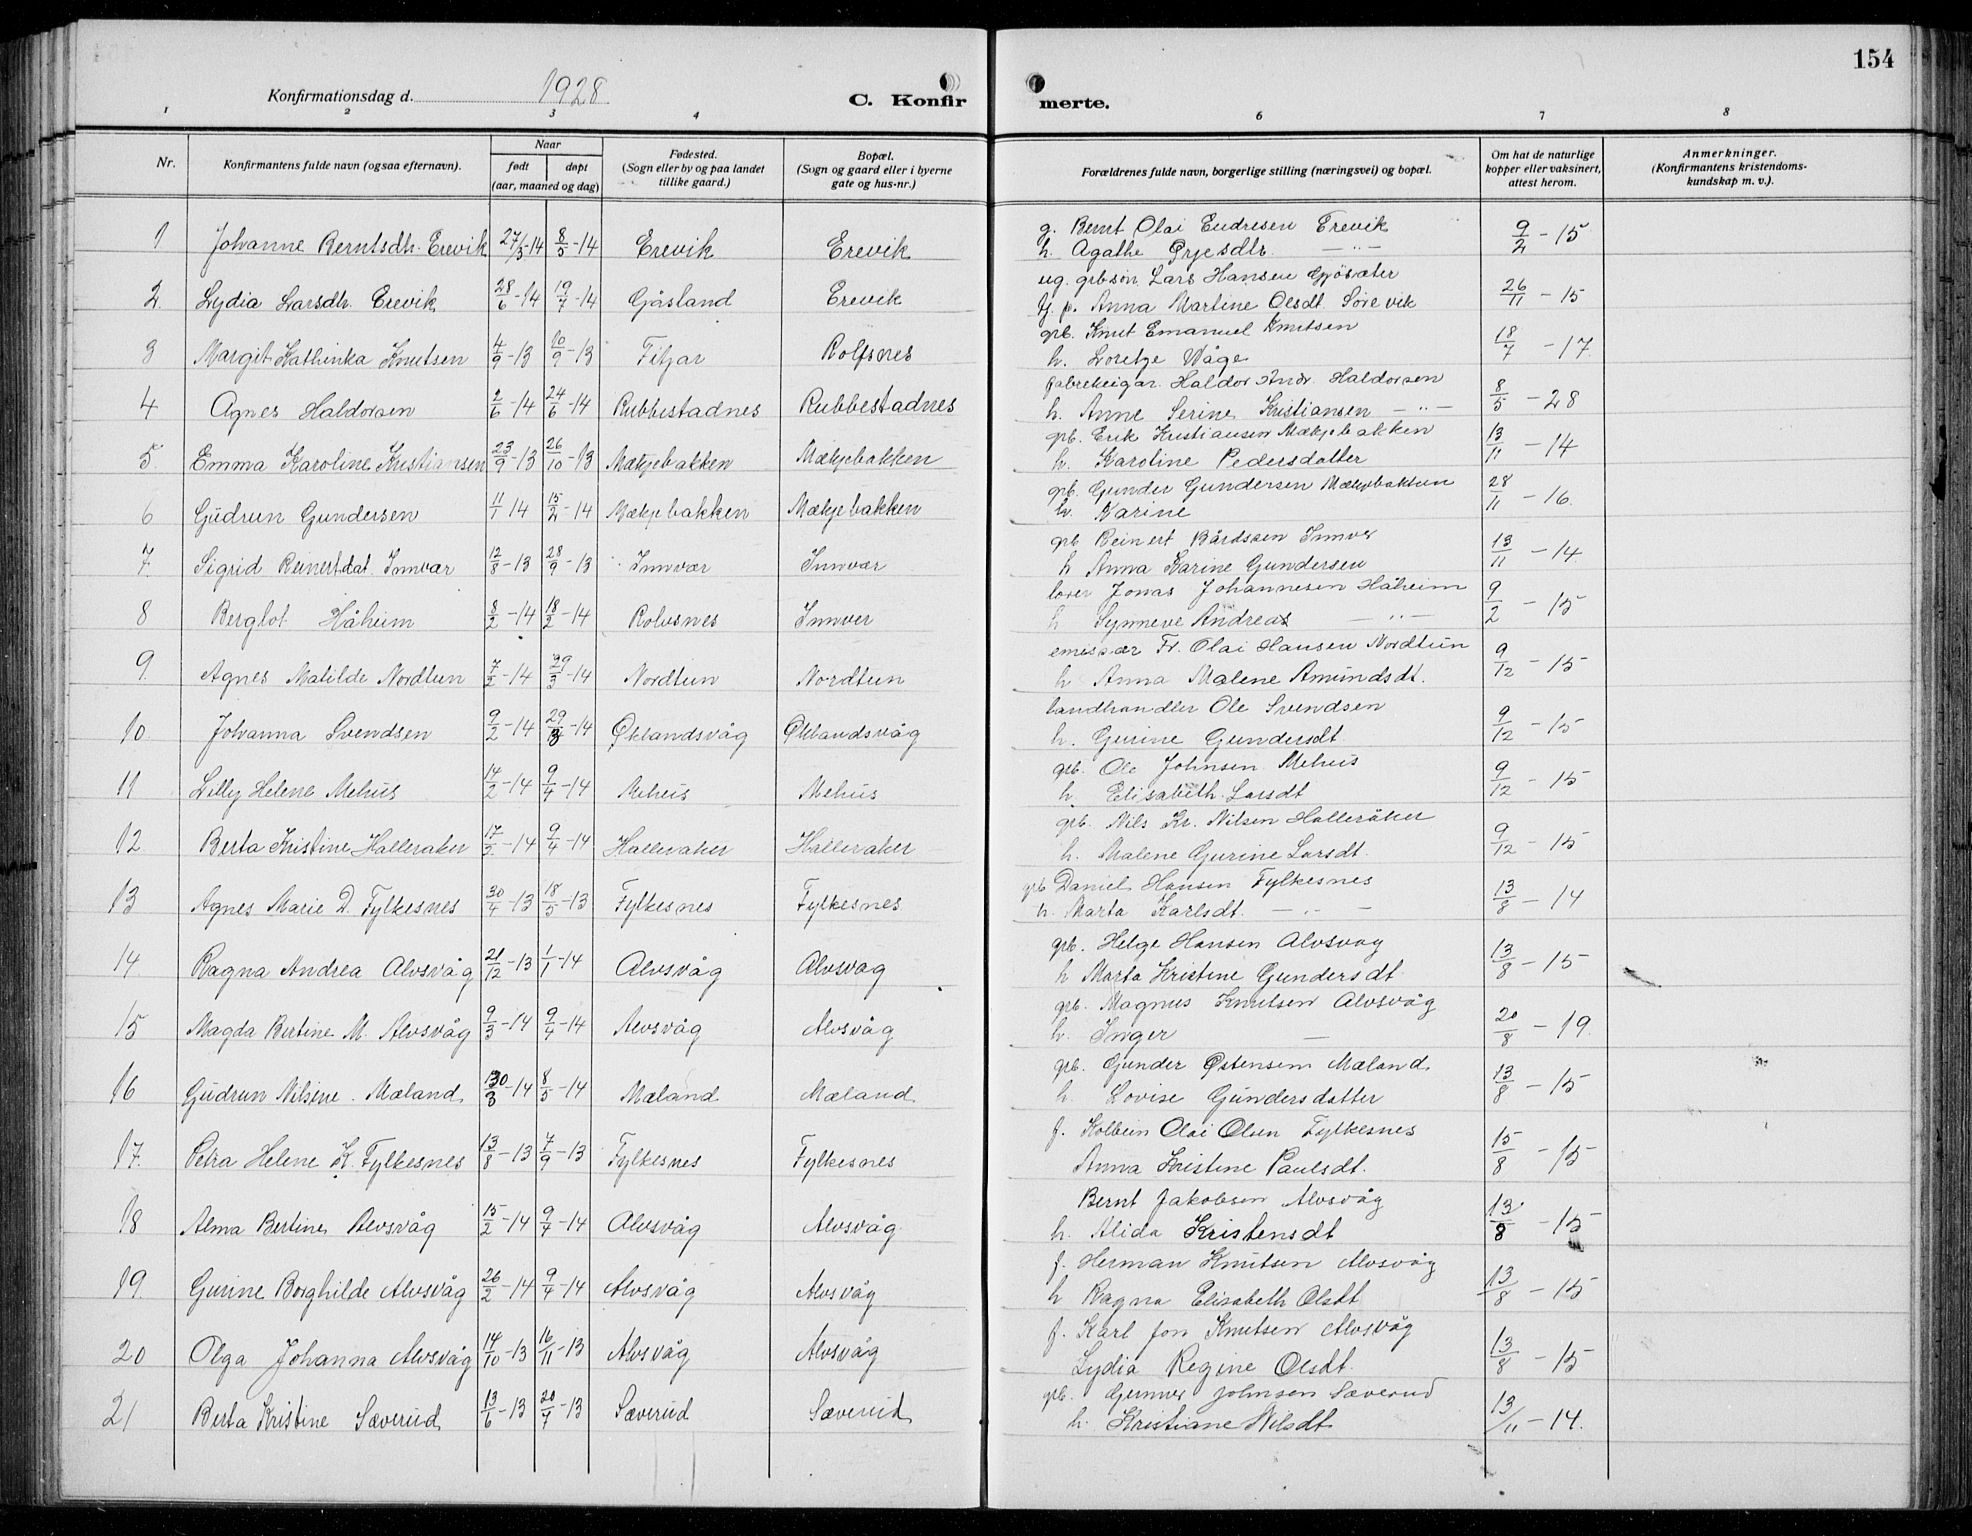 154
Konfirmationsdag d. 1928
C. Konfir merte.
1 2 3 4 6 7 8
Nr. Konfirmantens fulde navn (ogsaa efternavn). Naar født døpt (aar, maaned og dag) Fødested. (Sogn eller by og paa landet tillike gaard.) Bopæl. (Sogn og gaard eller i byerne gate og hus-nr.) Forældrenes fulde navn, borgerlige stilling (næringsvei) og bopæl. Om hat de naturlige kopper eller vaksinert, attest herom. Anmerkninger. (Konfirmantens kristendoms-kundskap m. v.).
1 Johanne Berntsdh. Erevik 27/3-14 8/5-14 Erevik Erevik g. Bernt Olai Endresen Erevik 9/2-15
h. Agathe Brjesdtr —"—
2 Lydia Larsdh. Erevik 28/6-14 19/7-14 Gåsland Erevik ug. grbsøn Lars Hansen Gjøsæter 26/11-15
tj. p. Anna Martine Olsdt Sørevik
3 Margit Kathinka Knutsen 4/9-13 10/9-13 Fitjar Rolfsnes grb. Knut Emanuel Knutsen 18/7-17
h. Loretze Våge
4 Agnes Haldorsen 2/6-14 24/6-14 Rubbestadnes Rubbestadnes fabrekeigar. Haldor Andr. Haldorsen 8/5-28
h. Anne Serine Kristiansen —"—
5 Emma Karoline Kristiansen 23/9-13 26/10-13 Mækjebakken Mækjebakken grb. Erik Kristiansen Mækjebakken 13/11-14
h. Karoline Pedersdatter
6 Gudrun Gundersen 11/1 14 15/2-14 Mækjebakken Mækjebakken grb. Gunder Gundersen Mækjebakken 28/11-16.
h. Karine
7. Sigrid Reinertdat. Innvær 12/8-13 28/9-13 Innvær Innvær grb Reinert Bårdssen Innver 13/11-14
h Anna Karine Gundersen
8 Berglot Håheim 8/2-14 18/2-14 Rolvsnes Innver lærer Jonas Johannesen Håheim 9/2-15
h Synneve Andreas —"—
9. Agnes Matilde Nordtun 7/2-14 29/3-14 Nordtun Nordtun emissær Fr. Olai Hansen Nordtun 9/12-15
h Anna Malene Amundsdt.
10. Johanna Svendsen 9/2-14 29/3-14 Øklandsvåg Øklandsvåg landhandler Ole Svendsen 9/12-15
h. Gurine Gundersdt.
11 Lilly Helene Mehus 14/2-14 9/4-14 Mehus Mehus grb. Ole Johnsen Mehus 9/12-15
h. Elisabeth Larsdt
12 Berta Kristine Halleraker 17/3-14 9/4-14 Halleraker Halleraker grb. Nils Kr. Nilsen Halleråker 9/12-15
h. Malene Gurine Larsdt.
13 Agnes Marie D. Fylkesnes 30/4-13 18/5-13 Fylkesnes Fylkesnes grb Daniel Hansen Fylkesnes 13/8-14
h. Marta Karlsdt. —"—
14 Ragna Andrea Alvsvåg 21/12-13 1/1-14 Alvsvåg Alvsvag grb. Helge Hansen Alvsvag 13/8-15
h Marta Kristine Gundersdt
15 Magda Bertine M. Alvsvåg 9/3-14 9/4-14 Alvsvåg Alvsvåg grb. Magnus Knutsen Alvsvåg 20/8-19.
h. Inger —
16 Gudrun Nilsine Mæland 30/3-14 8/5-14 Mæland Mæland grb. Gunder Østensen Mæland. 13/8-15
h. Lovise Gundersdatter
17. Petra Helene K. Fylkesnes 13/8-13 7/9-13 Fylkesnes Fylkesnes f. Kolbein Olai Olsen Fylkesnes 15/8-15
Anna Kristine Paulsdt.
18 Alma Bertine Alvsvåg 15/2-14 9/4-14 Alvsvåg Alvsvåg Bernt Jakobsen Alvsvåg 13/8-15
h. Alida Kristensdt
19. Gurine Borghilde Alvsvåg 26/2-14 9/4-14 Alvsvåg Alvsvåg f. Herman Knutsen Alvsvåg 13/8-15
h Ragna Elisabeth Olsdt
20 Olga Johanna Alvsvåg 14/10-13 16/11-13 Alvsvåg Alvsvåg f. Karl Jon Knutsen Alvsvåg 13/8-15
Lydia Regine Olsdt.
21 Berta Kristine Sæverud 13/6-13 20/7-13 Sæverud Sæverud grb. Gunner Johnsen Sæverud 13/11-14.
h. Kristiane Nilsdt